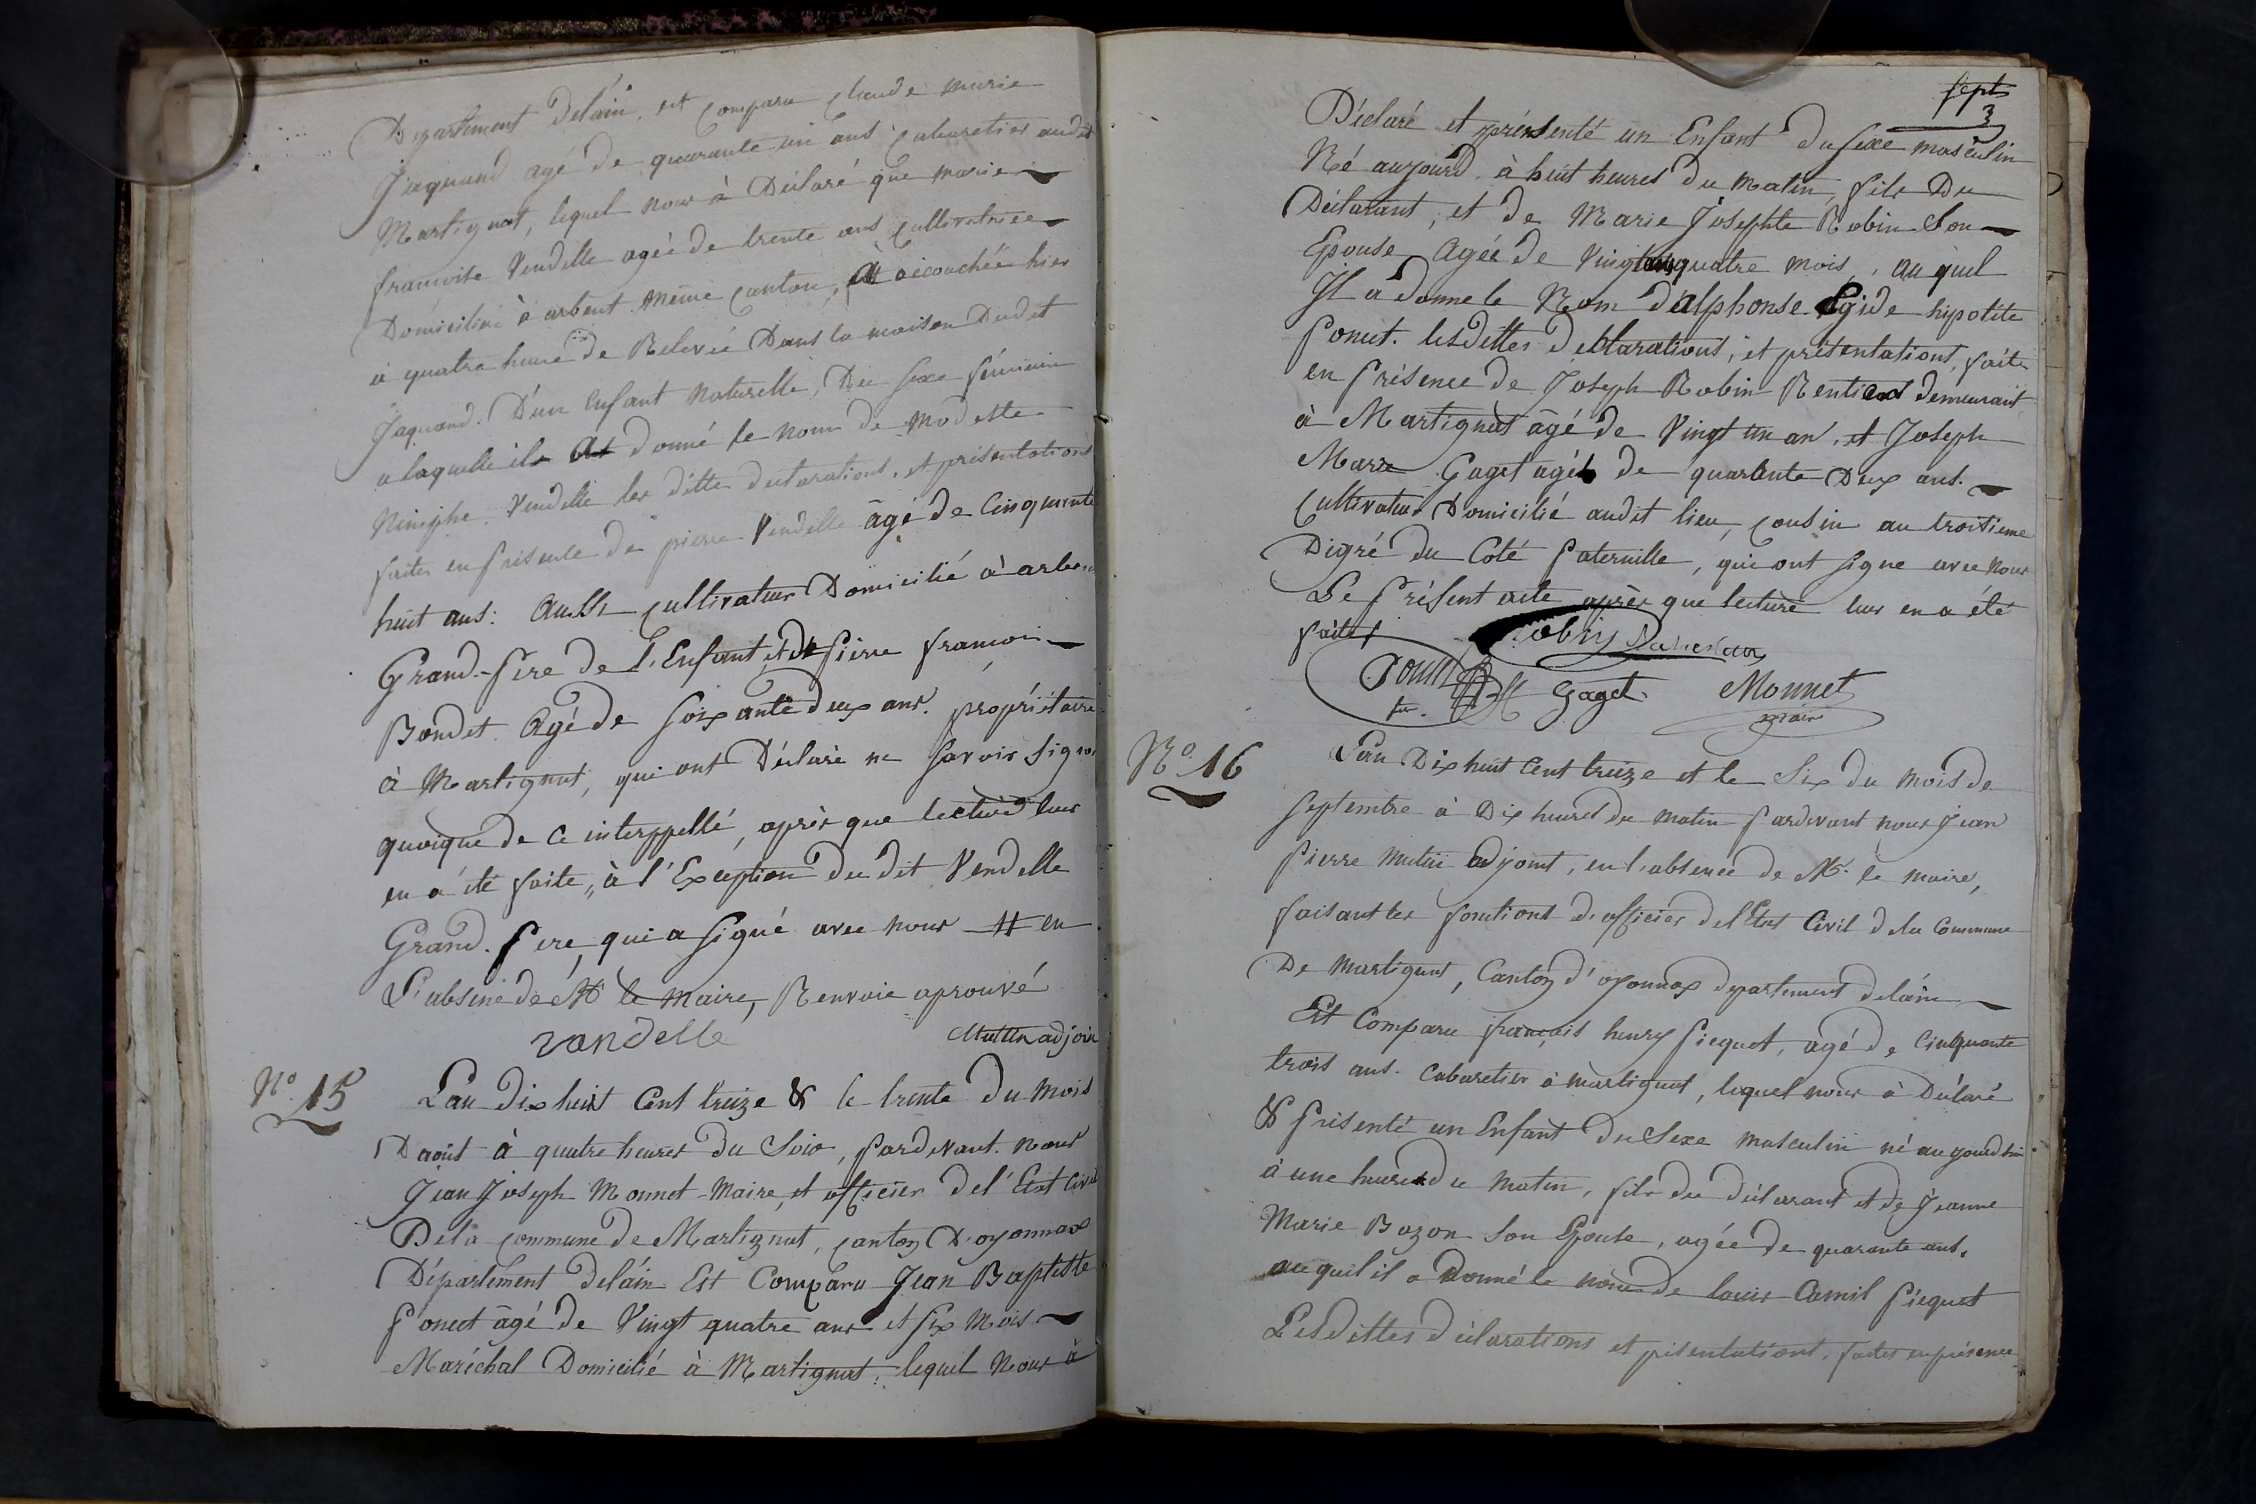 Département Delain, est comparu claude marie
Jaquand agé de quarante un ans cabaretier audit
Martignat, lequel nous à Déclaré que marie
francoise Vendelle agée de trente ans cultivatrice
Domiciliée à arbent même canton, At accouchée hier
à quatre heure de Relevée Dans la maison Dudit
Jaquand. D'un Enfant Naturelle, Du sexe féminin
a laquelle ils At donné le nom de Modeste
Nimphe Vendelle les dittes declarations, et présentations
faites en présence de pierre Vendelle âgé de Cinquante
huit ans: Aussi cultivateur Domicilié à arbent
Grand-Pere de l'Enfant, et de Pierre francois
Bondet Agé de soixante deux ans. propriétaire
à Martignat, qui ont Déclaré ne savoir signer
quoique de ce interppellé, après que lecture leur
en a été faite, à l'Exception du dit Vendelle
Grand-Pere, qui a signé avec nous # en
L'absence de Mr le Maire, Renvoie aprouvé
vandelle Mutin adjoin
No. 15
L'an dix huit Cent treize & le trente Du Mois
D'août à quatre heures Du Soir, Pardevant Nous
Jean Joseph Monnet Maire, et officier De l'Etat Civil
De la commune de Martignat, canton D'oyonnax
Département Delain Est Comparu Jean Baptiste
Ponect âgé De Vingt quatre ans et six Mois
Maréchal Domicilié à Martignat, lequel Nous à
sept
3
Déclaré et présenté un Enfant Du Sexe masculin
Né aujourd. à huit heures Du Matin, fils Du
Déclarant, et de Marie Josephte Robin Son
Epouse Agée De Vingt quatre mois, au quel
Il a donne le Nom d'Alphonse Egide hipolite
Ponect. lesdittes Declarations, et présentations, faites
en Présence De Joseph Robin Rentier demeurant
à Martignat âgé de Vingt un an, et Joseph
Marie Gaget agé de quarante Deux ans.
Cultivateur Domicilié audit lieu, cousin au troisieme
Digré du Coté Paternille, qui ont signe avec nous
Le Présent acte après que lecture leur en a été
faite
Gaget Monnet
maire
No. 16
L'an Dix huit Cent treize et le Six du mois de
Septembre à Dix heures du matin Pardevant nous Jean
Pierre Mutin adjoint, en l'absence de Mr. le maire,
faisant les fonctions d'officier de l'Etat Civil de la Commune
De Martignat, Canton d'oyonnax departement delain
Est Comparu françois henry Piequet, agé de Cinquante
trois ans. Cabaretier à martignat, lequel nous à Déclaré
& Présenté un Enfant Du Sexe masculin né aujourd'hui
à une heure du Matin, fils du déclarant et de Jeanne
Marie Bozon Son Epouse, agée de quarante ans.
au quil il a Donné le nom de louis Camil Piequet
Lesdittes déclarations et présentations, faites en présence